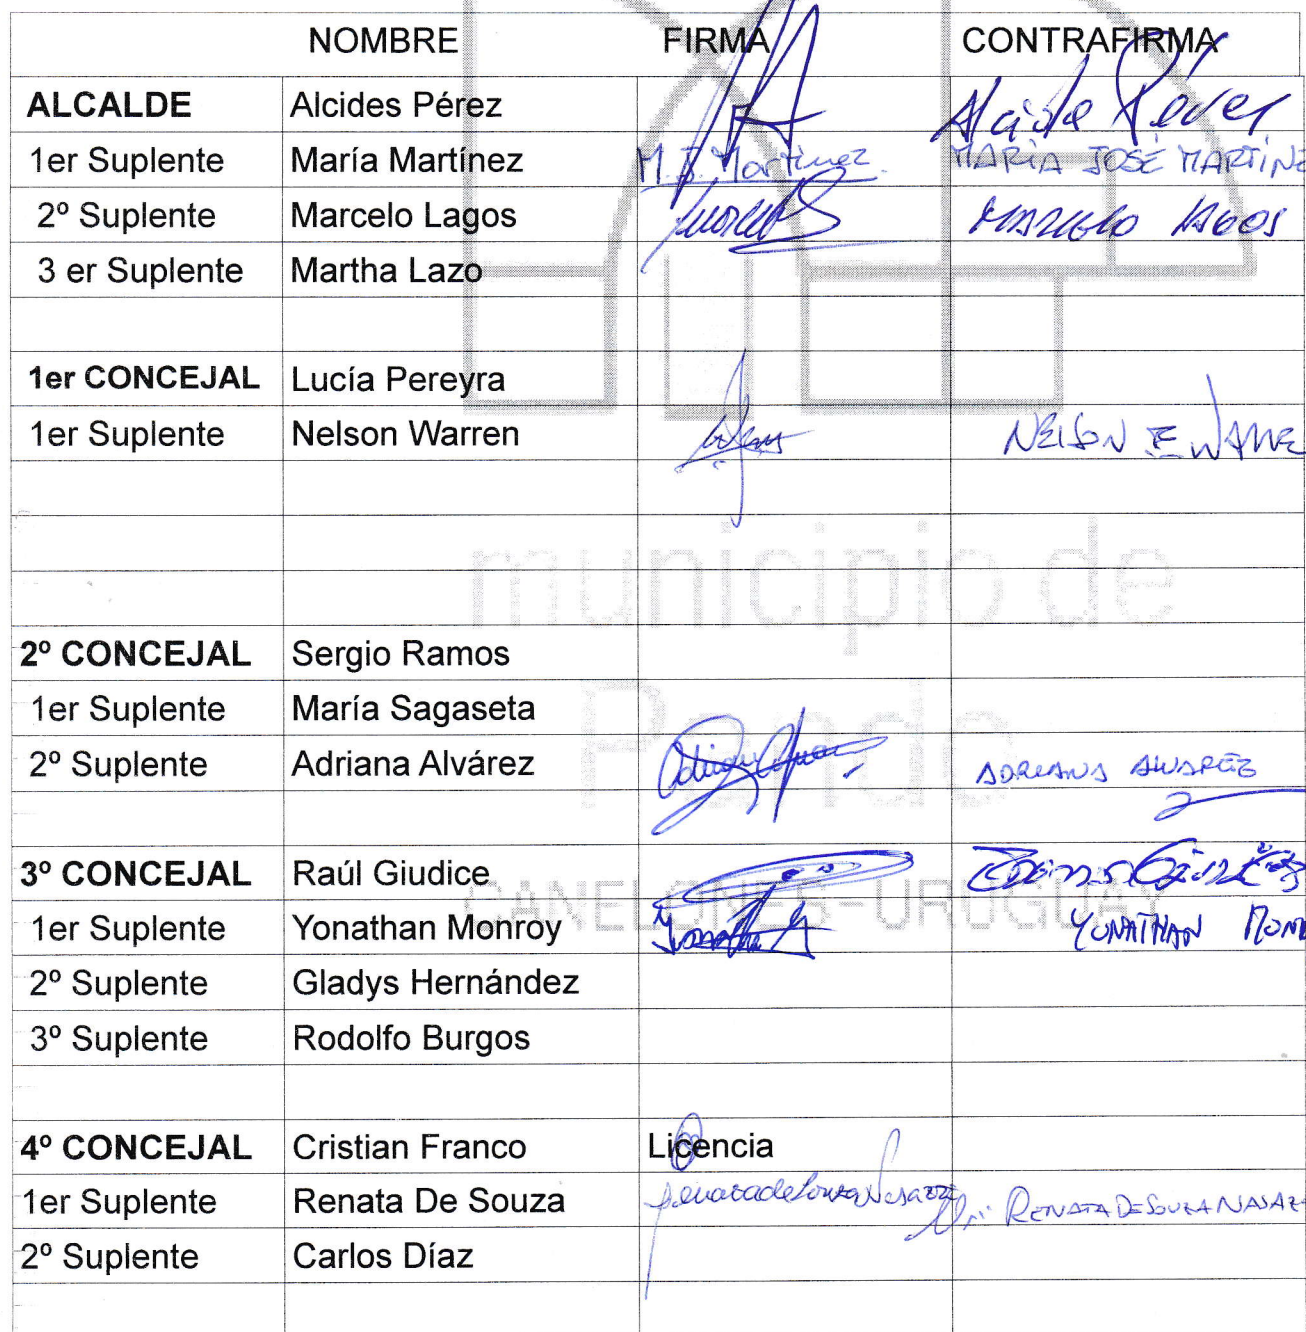 NOMBRE FIRMA CONTRAFIRMA
ALCALDE Alcides Pérez Alcides Pérez
1er Suplente María Martínez M.J. Martínez MARÍA JOSÉ MARTINE
2º Suplente Marcelo Lagos Marcelo MARCELO LAGOS
3 er Suplente Martha Lazo
1er CONCEJAL Lucía Pereyra
1er Suplente Nelson Warren NELSON E WARRE
municipio de
2º CONCEJAL Sergio Ramos
1er Suplente María Sagaseta
Pando
2º Suplente Adriana Alvárez ADRIANA ALVAREZ
3º CONCEJAL Raúl Giudice
CANELONES-URUGUAY
1er Suplente Yonathan Monroy YONATHAN MONR
2º Suplente Gladys Hernández
3º Suplente Rodolfo Burgos
4º CONCEJAL Cristian Franco Licencia
1er Suplente Renata De Souza RENATA DE SOUZA NASAZ
2º Suplente Carlos Díaz